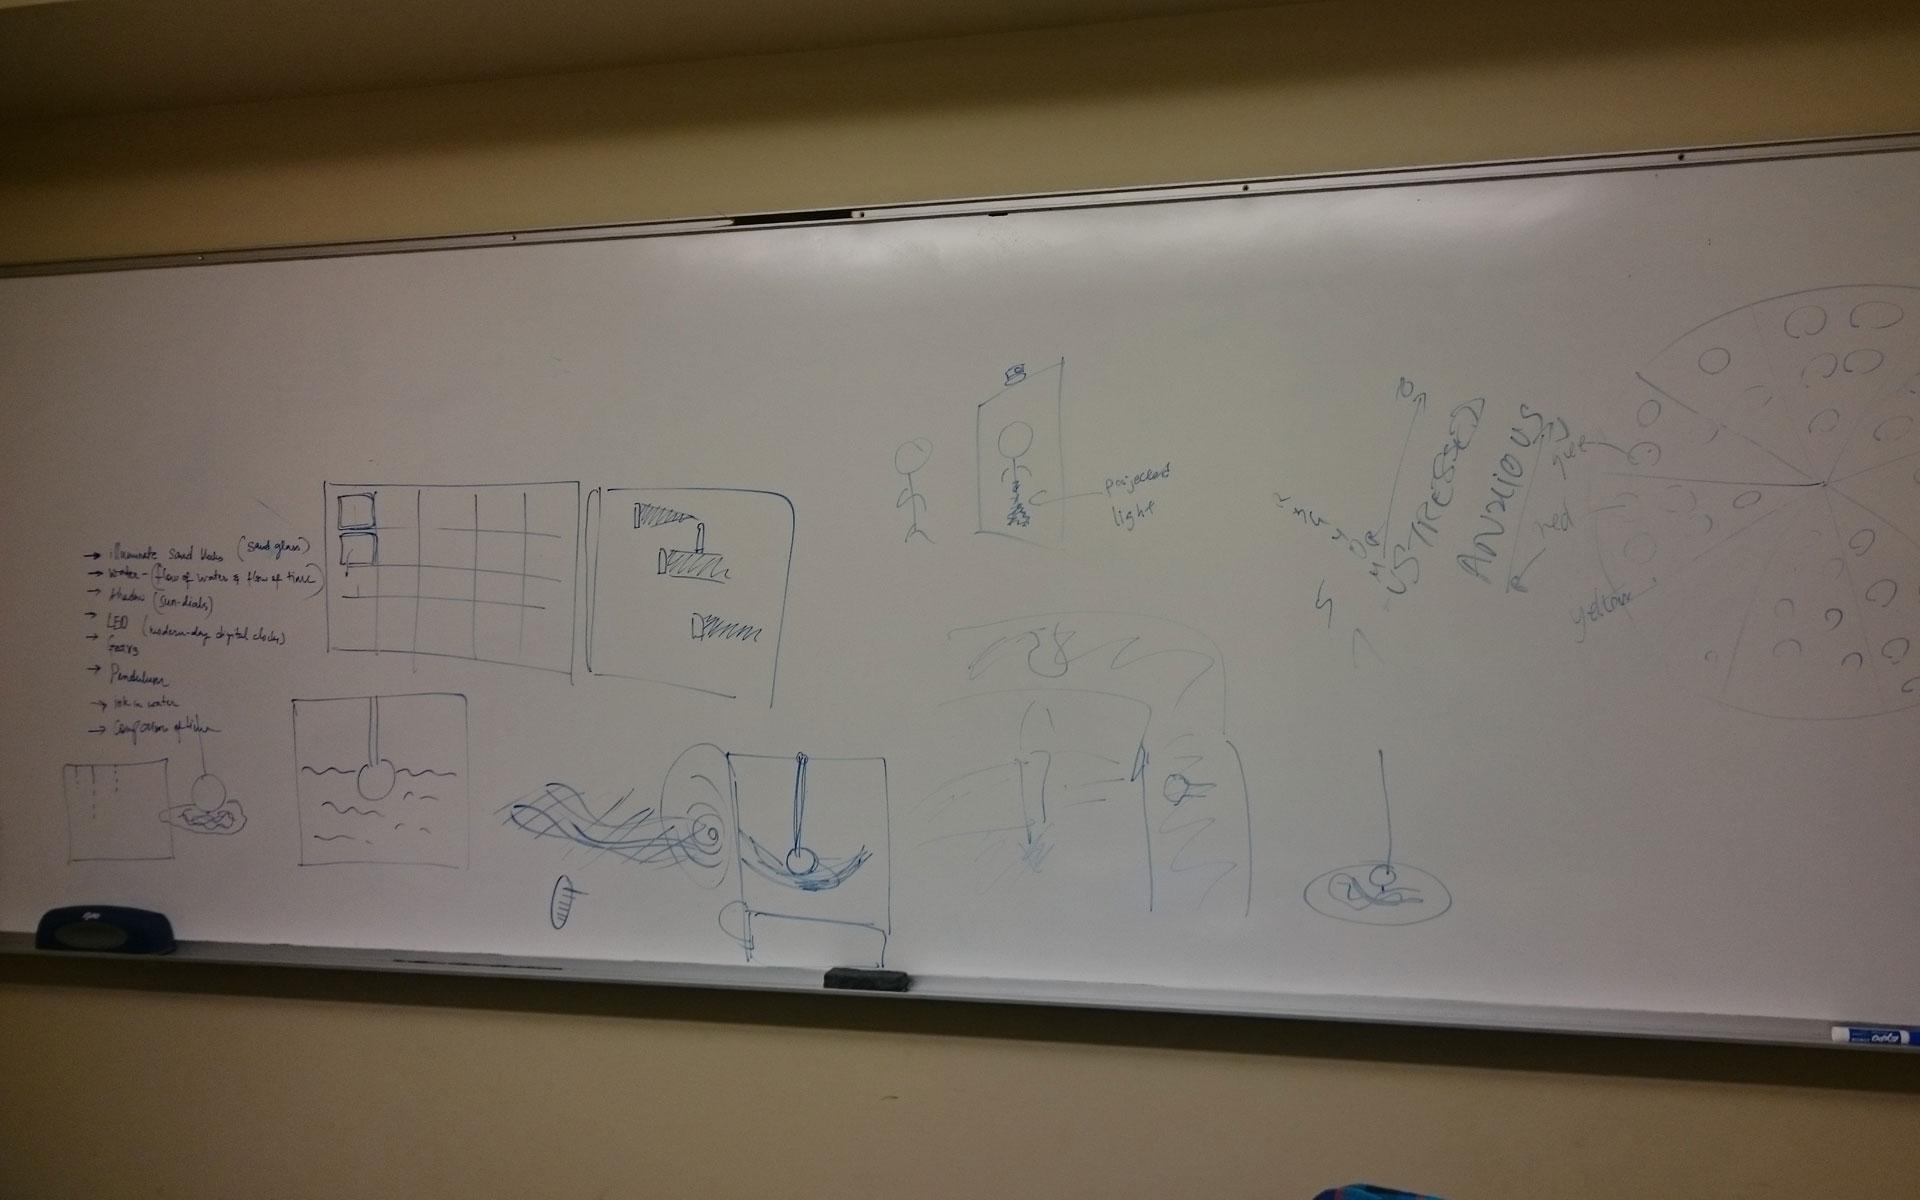 → illuminate sand (sand glass)
→ water - (flow of water & flow of time)
→ shadow (sun-dials)
→ LED (modern-day digital clocks)
→ Gears
→ Pendulum
→ ink in water
→ Comparison of time
projected
light
STRESSED
ANXIOUS
green
red
yellow
EXPO